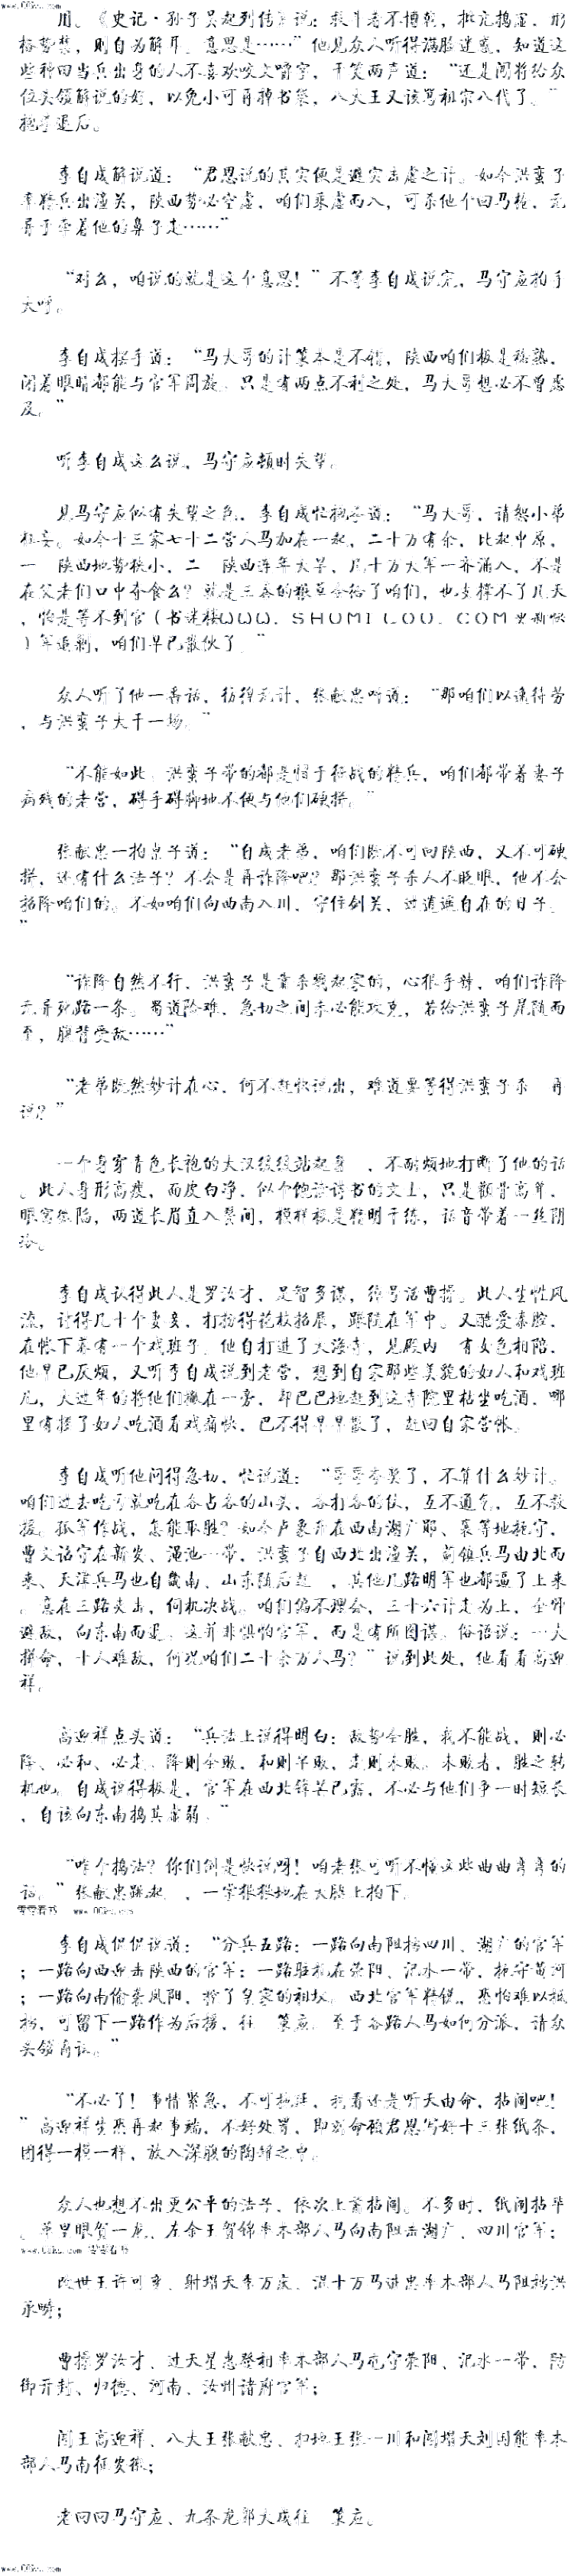 用。《史记·孙子吴起列传》说：救斗者不搏戟，批亢捣虚，形
格势禁，则自为解耳。意思是……”他见众人听得满脸迷惑，知道这
些种田当兵出身的人不喜欢咬文嚼字，干笑两声道：“还是闯将给众
位头领解说的好，以免小可再掉书袋，八大王又该骂祖宗八代了。”
拱手退后。
李自成解说道：“君恩说的其实便是避实击虚之计。如今洪蛮子
率精兵出潼关，陕西势必空虚，咱们乘虚而入，可杀他个回马枪，无
异于牵着他的鼻子走……”
“对么，咱说的就是这个意思！”不等李自成说完，马守应拍手
大呼。
李自成摆手道：“马大哥的计策本是不错，陕西咱们极是稔熟，
闭着眼睛都能与官军周旋。只是有两点不利之处，马大哥想必不曾虑
及。”
听李自成这么说，马守应顿时失望。
见马守应似有失望之色，李自成忙抱拳道：“马大哥，请恕小弟
狂妄。如今十三家七十二营人马加在一起，二十万有余，比起中原，
一 陕西地势狭小，二 陕西连年大旱，几十万大军一齐涌入，不是
在父老们口中夺食么？就是三秦的粮草全给了咱们，也支撑不了几天
，怕是等不到官（书迷楼ＷＷＷ．ＳＨＵＭＩＬＯＵ．ＣＯＭ更新快
）军追剿，咱们早已散伙了。”
众人听了他一番话，彷徨无计，张献忠叫道：“那咱们以逸待劳
，与洪蛮子大干一场。”
“不能如此。洪蛮子带的都是惯于征战的精兵，咱们都带着妻子
病残的老营，碍手碍脚地不便与他们硬拼。”
张献忠一拍桌子道：“自成老弟，咱们既不可回陕西，又不可硬
拼，还有什么法子？不会是再诈降吧？那洪蛮子杀人不眨眼，他不会
招降咱们的。不如咱们向西南入川，守住剑关，过逍遥自在的日子。
”
“诈降自然不行，洪蛮子是靠杀戮起家的，心狠手辣，咱们诈降
无异死路一条。蜀道险难，急切之间未必能攻克，若给洪蛮子尾随而
至，腹背受敌……”
“老弟既然妙计在心，何不赶快说出，难道要等得洪蛮子杀 再
说？”
一个身穿青色长袍的大汉缓缓站起身 ，不耐烦地打断了他的话
。此人身形高瘦，面皮白净，似个饱读诗书的文士，只是颧骨高耸，
眼窝微陷，两道长眉直入鬓间，模样极是精明干练，话音带着一丝阴
冷。
李自成认得此人是罗汝才，足智多谋，绰号活曹操。此人生性风
流，讨得几十个妻妾，打扮得花枝招展，跟随在军中。又酷爱秦腔，
在帐下养有一个戏班子。他自打进了大海寺，见殿内 有女色相陪，
他早已厌烦，又听李自成说到老营，想到自家那些美貌的妇人和戏班
儿，大过年的将他们撇在一旁，却巴巴地赶到这寺院里枯坐吃酒，哪
里有搂了妇人吃酒看戏痛快，巴不得早早散了，赶回自家营帐。
李自成听他问得急切，忙说道：“哥哥夸奖了，不算什么妙计。
咱们过去吃亏就吃在各占各的山头，各打各的仗，互不通气，互不救
援。孤军作战，怎能取胜？如今卢象升在西南湖广郧、襄等地扼守，
曹文诏守在新安、渑池一带，洪蛮子自西北出潼关，蓟镇兵马由北而
来，天津兵马也自冀南、山东随后赶 ，其他几路明军也都逼了上来
。意在三路夹击，伺机决战。咱们偏不理会，三十六计走为上，全师
避敌，向东南而退。这并非惧怕官军，而是有所图谋。俗话说：一夫
拼命，十人难敌，何况咱们二十余万人马？”说到此处，他看看高迎
祥。
高迎祥点头道：“兵法上说得明白：敌势全胜，我不能战，则必
降、必和、必走。降则全败，和则半败，走则未败。未败者，胜之转
机也。自成说得极是，官军在西北锋芒已露，不必与他们争一时短长
，自该向东南捣其虚弱。”
“咋个捣法？你们倒是快说呀！咱老张可听不惯这些曲曲弯弯的
话。”张献忠跳起 ，一掌狠狠地在大腿上拍下。
李自成侃侃说道：“分兵五路：一路向南阻挡四川、湖广的官军
；一路向西迎击陕西的官军；一路驻扎在荥阳、汜水一带，扼守黄河
；一路向南偷袭凤阳，掘了皇家的祖坟。西北官军精锐，恐怕难以抵
挡，可留下一路作为后援，往 策应。至于各路人马如何分派，请众
头领商议。”
“不必了！事情紧急，不可拖延，我看还是听天由命，拈阄吧！
”高迎祥生恐再起事端，不好处置，即刻命顾君恩写好十三张纸条，
团得一模一样，放入深腹的陶罐之中。
众人也想不出更公平的法子，依次上前拈阄。不多时，纸阄拈毕
。革里眼贺一龙、左金王贺锦率本部人马向南阻击湖广、四川官军；
改世王许可变、射塌天李万庆、混十万马进忠率本部人马阻挡洪
承畴；
曹操罗汝才、过天星惠登相率本部人马屯守荥阳、汜水一带，防
御开封、归德、河南、汝州诸府官军；
闯王高迎祥、八大王张献忠、扫地王张一川和闯塌天刘国能率本
部人马南征安徽；
老回回马守应、九条龙郭大成往 策应。